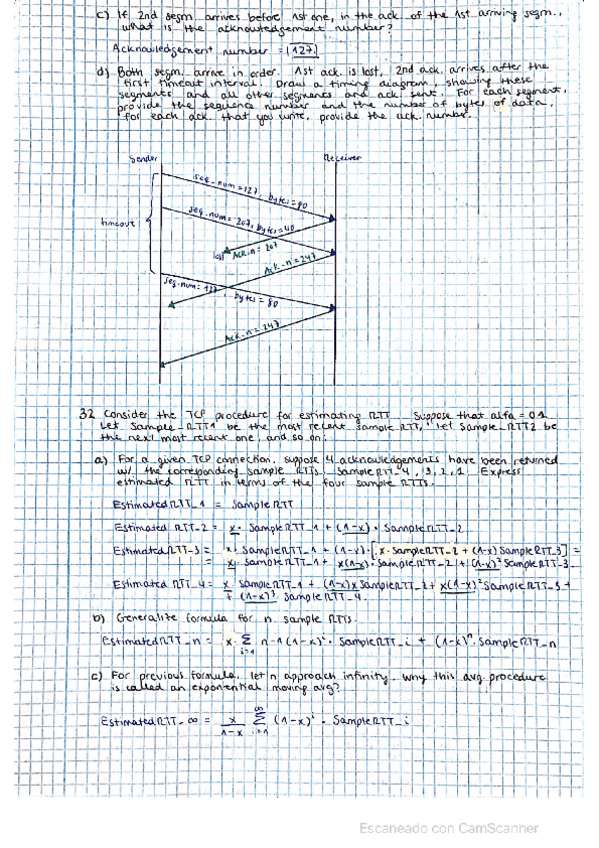 c) If 2nd segm. arrives before 1st one, in the ack. of the 1st arriving segm.,
what is the acknowledgement number?
Acknowledgement number = 127
d) Both segm. arrive in order. 1st ack. is lost, 2nd ack. arrives after the
first timeout interval. Draw a timing diagram, showing these
segments and all other segments and ack sent. For each segment,
provide the sequence number and the number of bytes of data,
for each ack. that you write, provide the ack. number.
Sender Receiver
seq-num=127, bytes=80
seq-num=207, bytes=40
timeout
lost Ack-n=207
Ack-n=247
seq-num=127, bytes=80
Ack-n=247
32 Consider the TCP procedure for estimating RTT. Suppose that alfa = 0.1
Let Sample-RTT1 be the most recent sample RTT, let Sample-RTT2 be
the next most recent one, and so on.
a) For a given TCP connection, suppose 4 acknowledgements have been returned
w/ the corresponding sample RTTs: SampleRTT-4, 3, 2, 1. Express
estimated RTT in terms of the four sample RTTs.
Estimated RTT_1 = Sample RTT
Estimated RTT-2 = x · SampleRTT_1 + (1-x) · SampleRTT_2
Estimated RTT-3 = x · SampleRTT_1 + (1-x) · [x · SampleRTT-2 + (1-x) SampleRTT_3] =
= x · SampleRTT_1 + x(1-x) · SampleRTT-2 + (1-x)² SampleRTT-3
Estimated RTT_4 = x · SampleRTT_1 + (1-x)x SampleRTT_2 + x(1-x)² SampleRTT-3 +
+ (1-x)³ SampleRTT-4.
b) Generalize formula for n sample RTTs.
EstimatedRTT_n = x · Σ i=1 n-1 (1-x)ⁱ · SampleRTT_i + (1-x)ⁿ · SampleRTT_n
c) For previous formula, let n approach infinity. Why this avg. procedure
is called an exponential moving avg?
EstimatedRTT_∞ = x/1-x Σ i=1 ∞ (1-x)ⁱ · SampleRTT_i
Escaneado con CamScanner